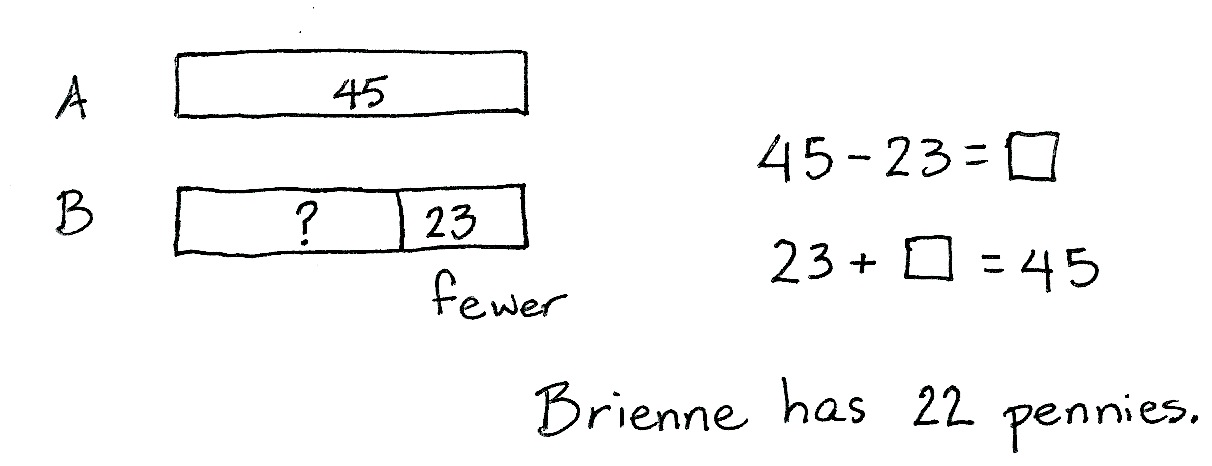 A 45
B ? 23
fewer
45 - 23 = □
23 + □ = 45
Brienne has 22 pennies.